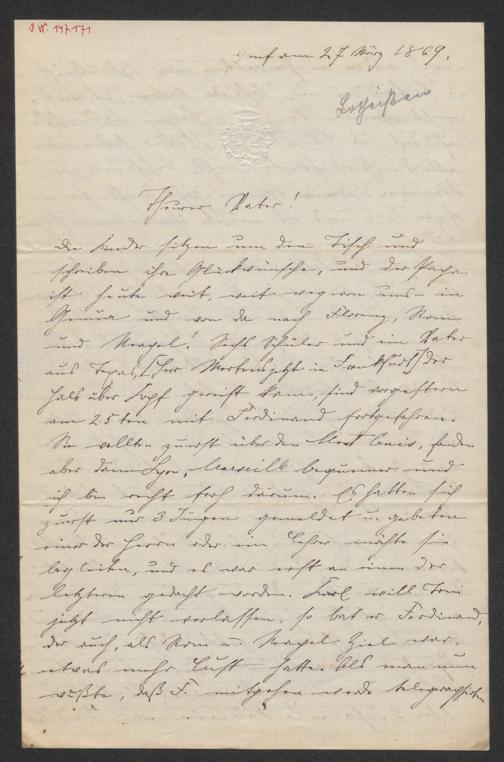 J.N. 147.171
Genf am 27 März 1869.
Lotheißen
Theurer Vater!
Die Kinder sitzen um den Tisch und
schreiben ihre Glückwünsche, und der Papa
ist heute weit, weit weg von uns – in
Genua und von da nach Florenz, Rom
und Neapel. Sechs Schüler und ein Vater
aus Texas, (Herr Mertens jetzt in Frankfurt) der
Hals über Kopf gereist kam, sind vorgestern
am 25ten mit Ferdinand fortgefahren.
Sie wollten zuerst über den Mont Cenis, fanden
aber dann Lyon, Marseille bequemer und
ich bin recht froh darum. Es hatten sich
zuerst nur 3 Jungen gemeldet u. gebeten
einer der Herrn oder ein Lehrer möchte sie
begleiten, und es war erst an einen der
letzteren gedacht worden. Karl will
jetzt nicht verlassen, so bat er Ferdinand,
der auch, als Rom u. Neapel Ziel war,
etwas mehr Lust hatte. Als man nun
wußte, daß F. mitgehen werde telegraphirten